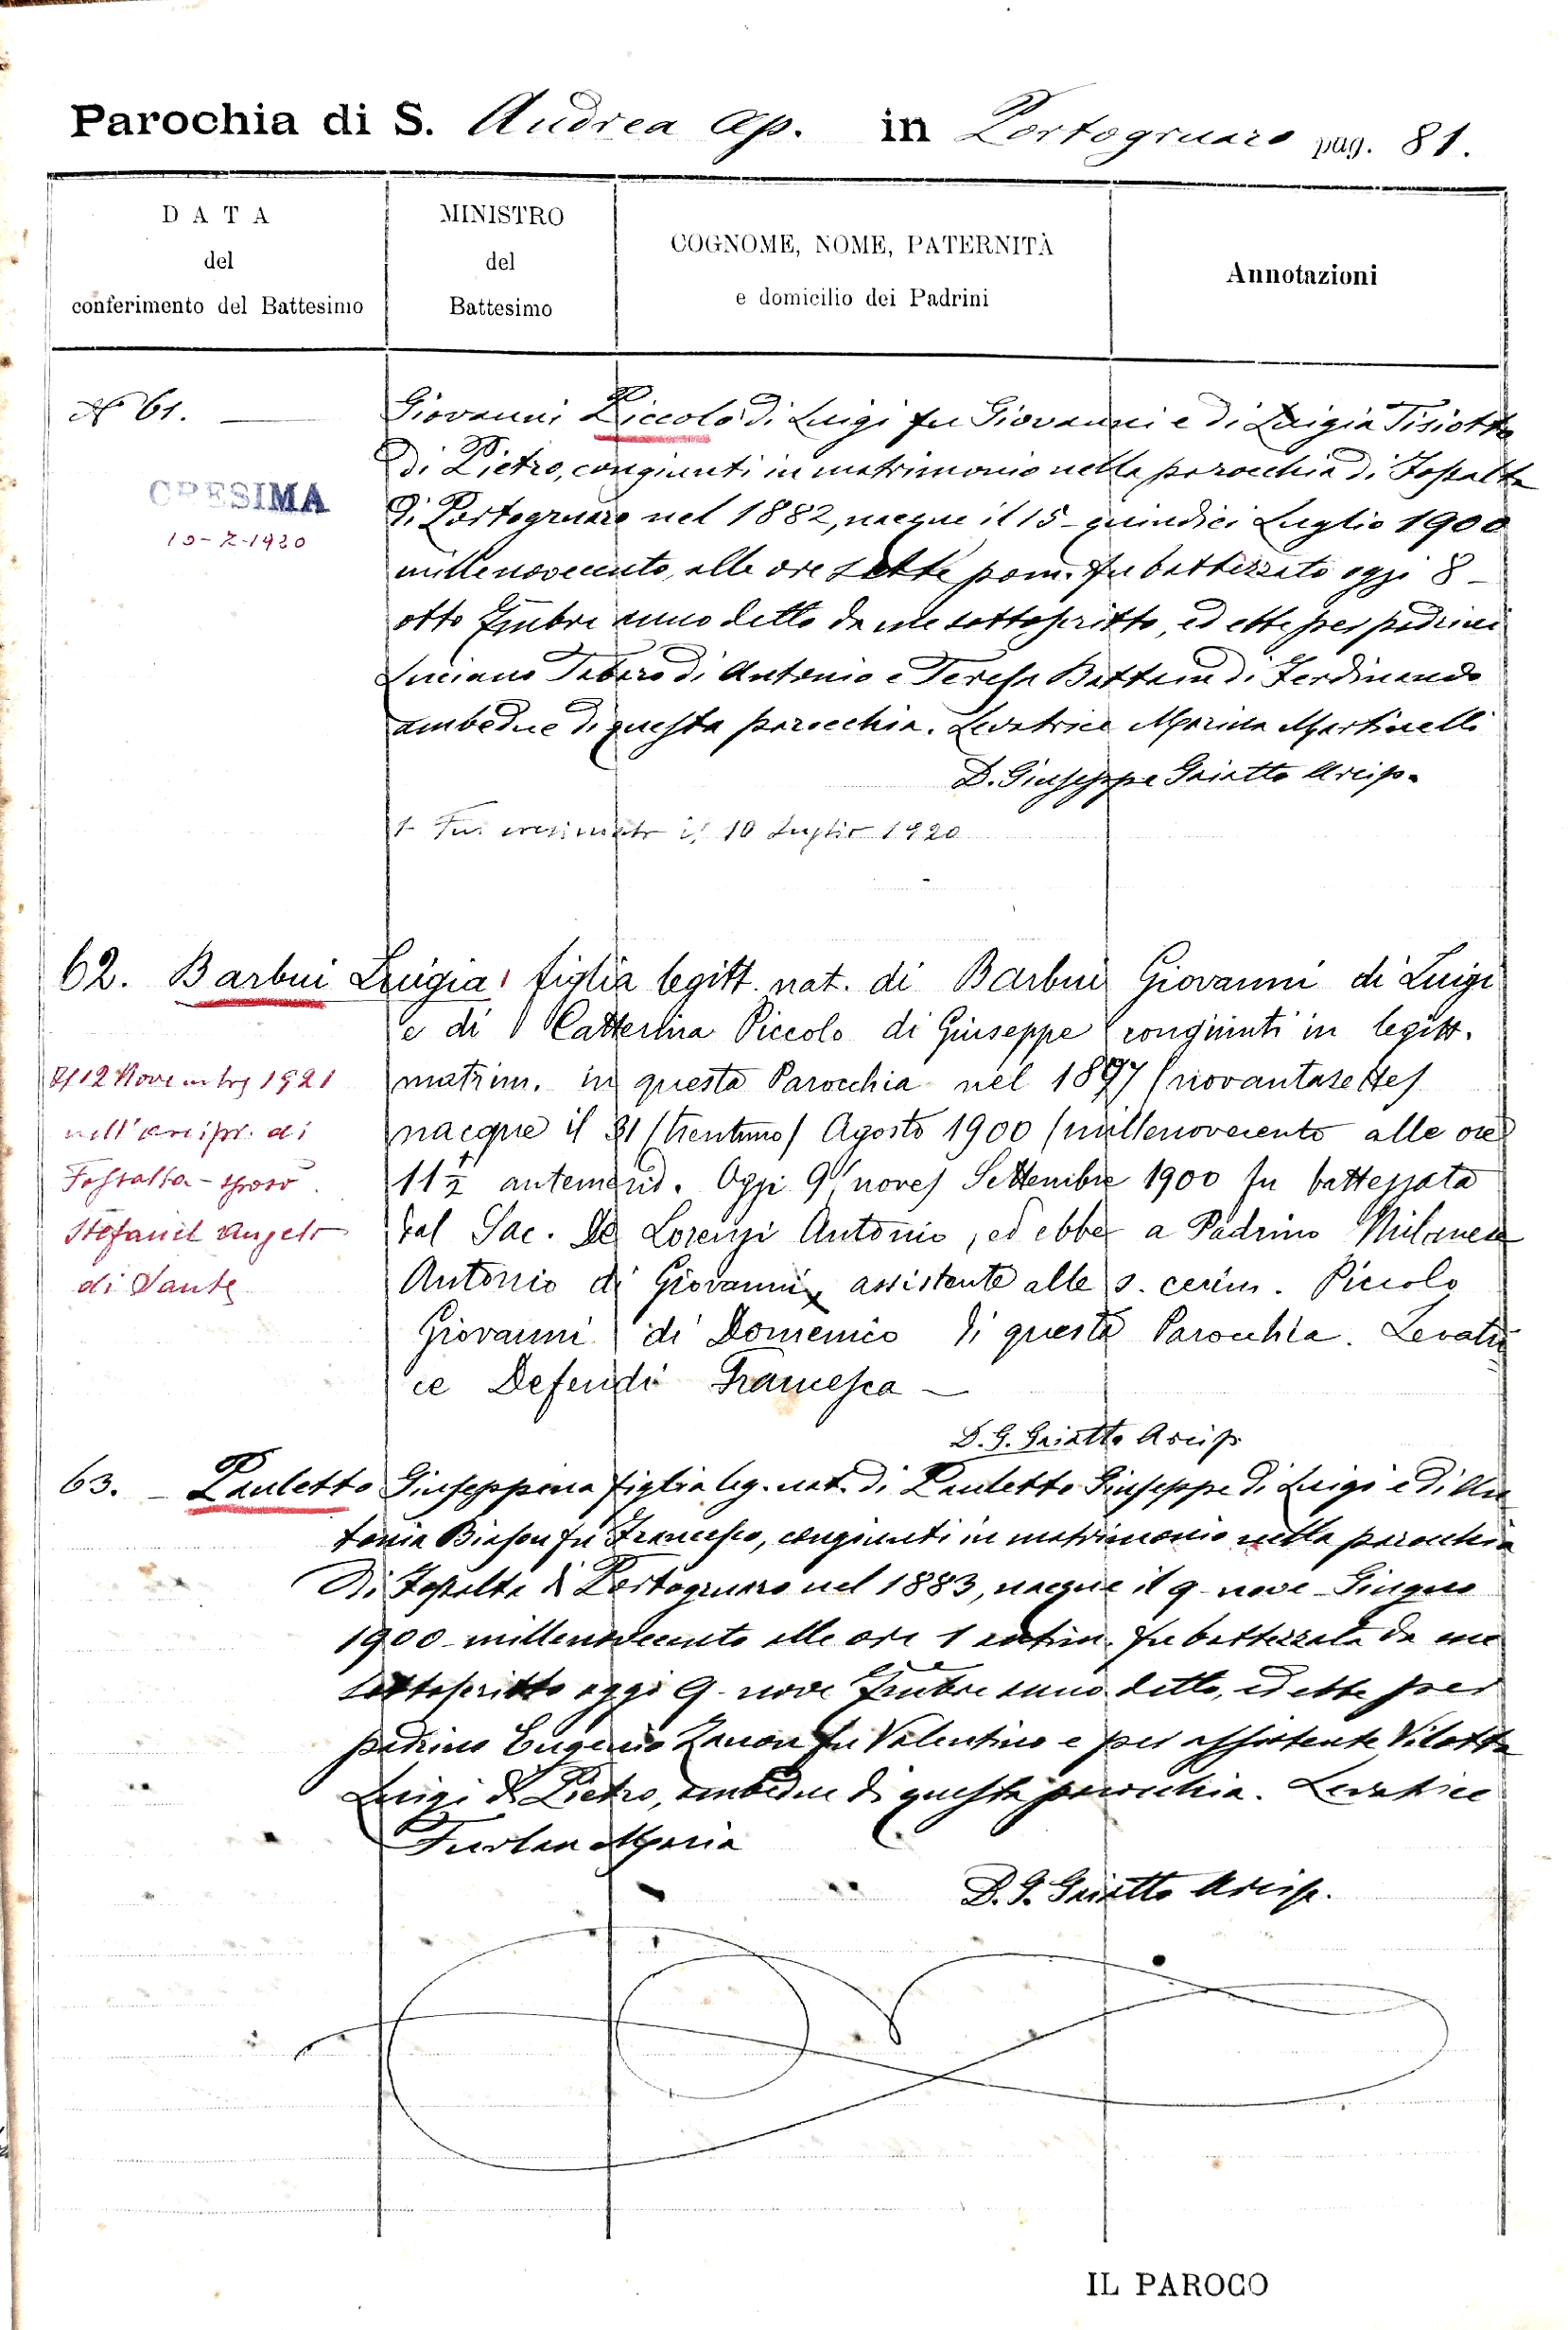 Parochia di S. Andrea Ap. in Portogruaro pag. 81.
DATA
del
conferimento del Battesimo
MINISTRO
del
Battesimo
COGNOME, NOME, PATERNITÀ
e domicilio dei Padrini
Annotazioni
N° 61.
Giovanni Piccolo di Luigi fu Giovanni e di Luigia Tisiotto
di Pietro, congiunti in matrimonio nella parocchia di Fossalta
di Portogruaro nel 1882, nacque il 15 - quindici Luglio 1900
millenovecento, alle ore sette pom. Fu battezzato oggi 8 -
otto 7mbre anno detto da me sottoscritto, ed ebbe per padrini
Luciano Tabaro di Antonio e Teresa Battain di Ferdinando
ambedue di questa parocchia. Levatrice Marina Martinelli
D. Giuseppe Gaiatto Arcip.
CRESIMA
10-7-1920
Fu cresimato il 10 Luglio 1920
62. Barbui Luigia figlia legitt. nat. di Barbui Giovanni di Luigi
e di Catterina Piccolo di Giuseppe congiunti in legitt.
matrim. in questa Parocchia nel 1897 (novantasette)
nacque il 31 (trentuno) Agosto 1900 (millenovecento alle ore
11 ½ antemerid. Oggi 9 (nove) Settembre 1900 fu battezzata
dal Sac. De Lorenzi Antonio, ed ebbe a Padrino Milanese
Antonio di Giovanni, assistente alle s. cerim. Piccolo
Giovanni di Domenico di questa Parocchia. Levatri
ce Defendi Francesca —
D. G. Gaiatto Arcip.
Il 12 Novembre 1921
nell'arcipr. di
Fossalta - sposò
Stefanel Angelo
di Sante
63. - Pauletto Giuseppina figlia leg. nat. di Pauletto Giuseppe di Luigi e di An
tonia Biason fu Francesco, congiunti in matrimonio nella parocchia
di Fossalta di Portogruaro nel 1883, nacque il 9 - nove - Giugno
1900 - millenovecento alle ore 1 antim. Fu battezzata da me
sottoscritto oggi 9 - nove 7mbre anno detto, ed ebbe per
padrino Eugenio Zanon fu Valentino e per assistente Vilotta
Luigi di Pietro, ambedue di questa parocchia. Levatrice
Furlan Maria
D. G. Gaiatto Arcip.
IL PAROCO